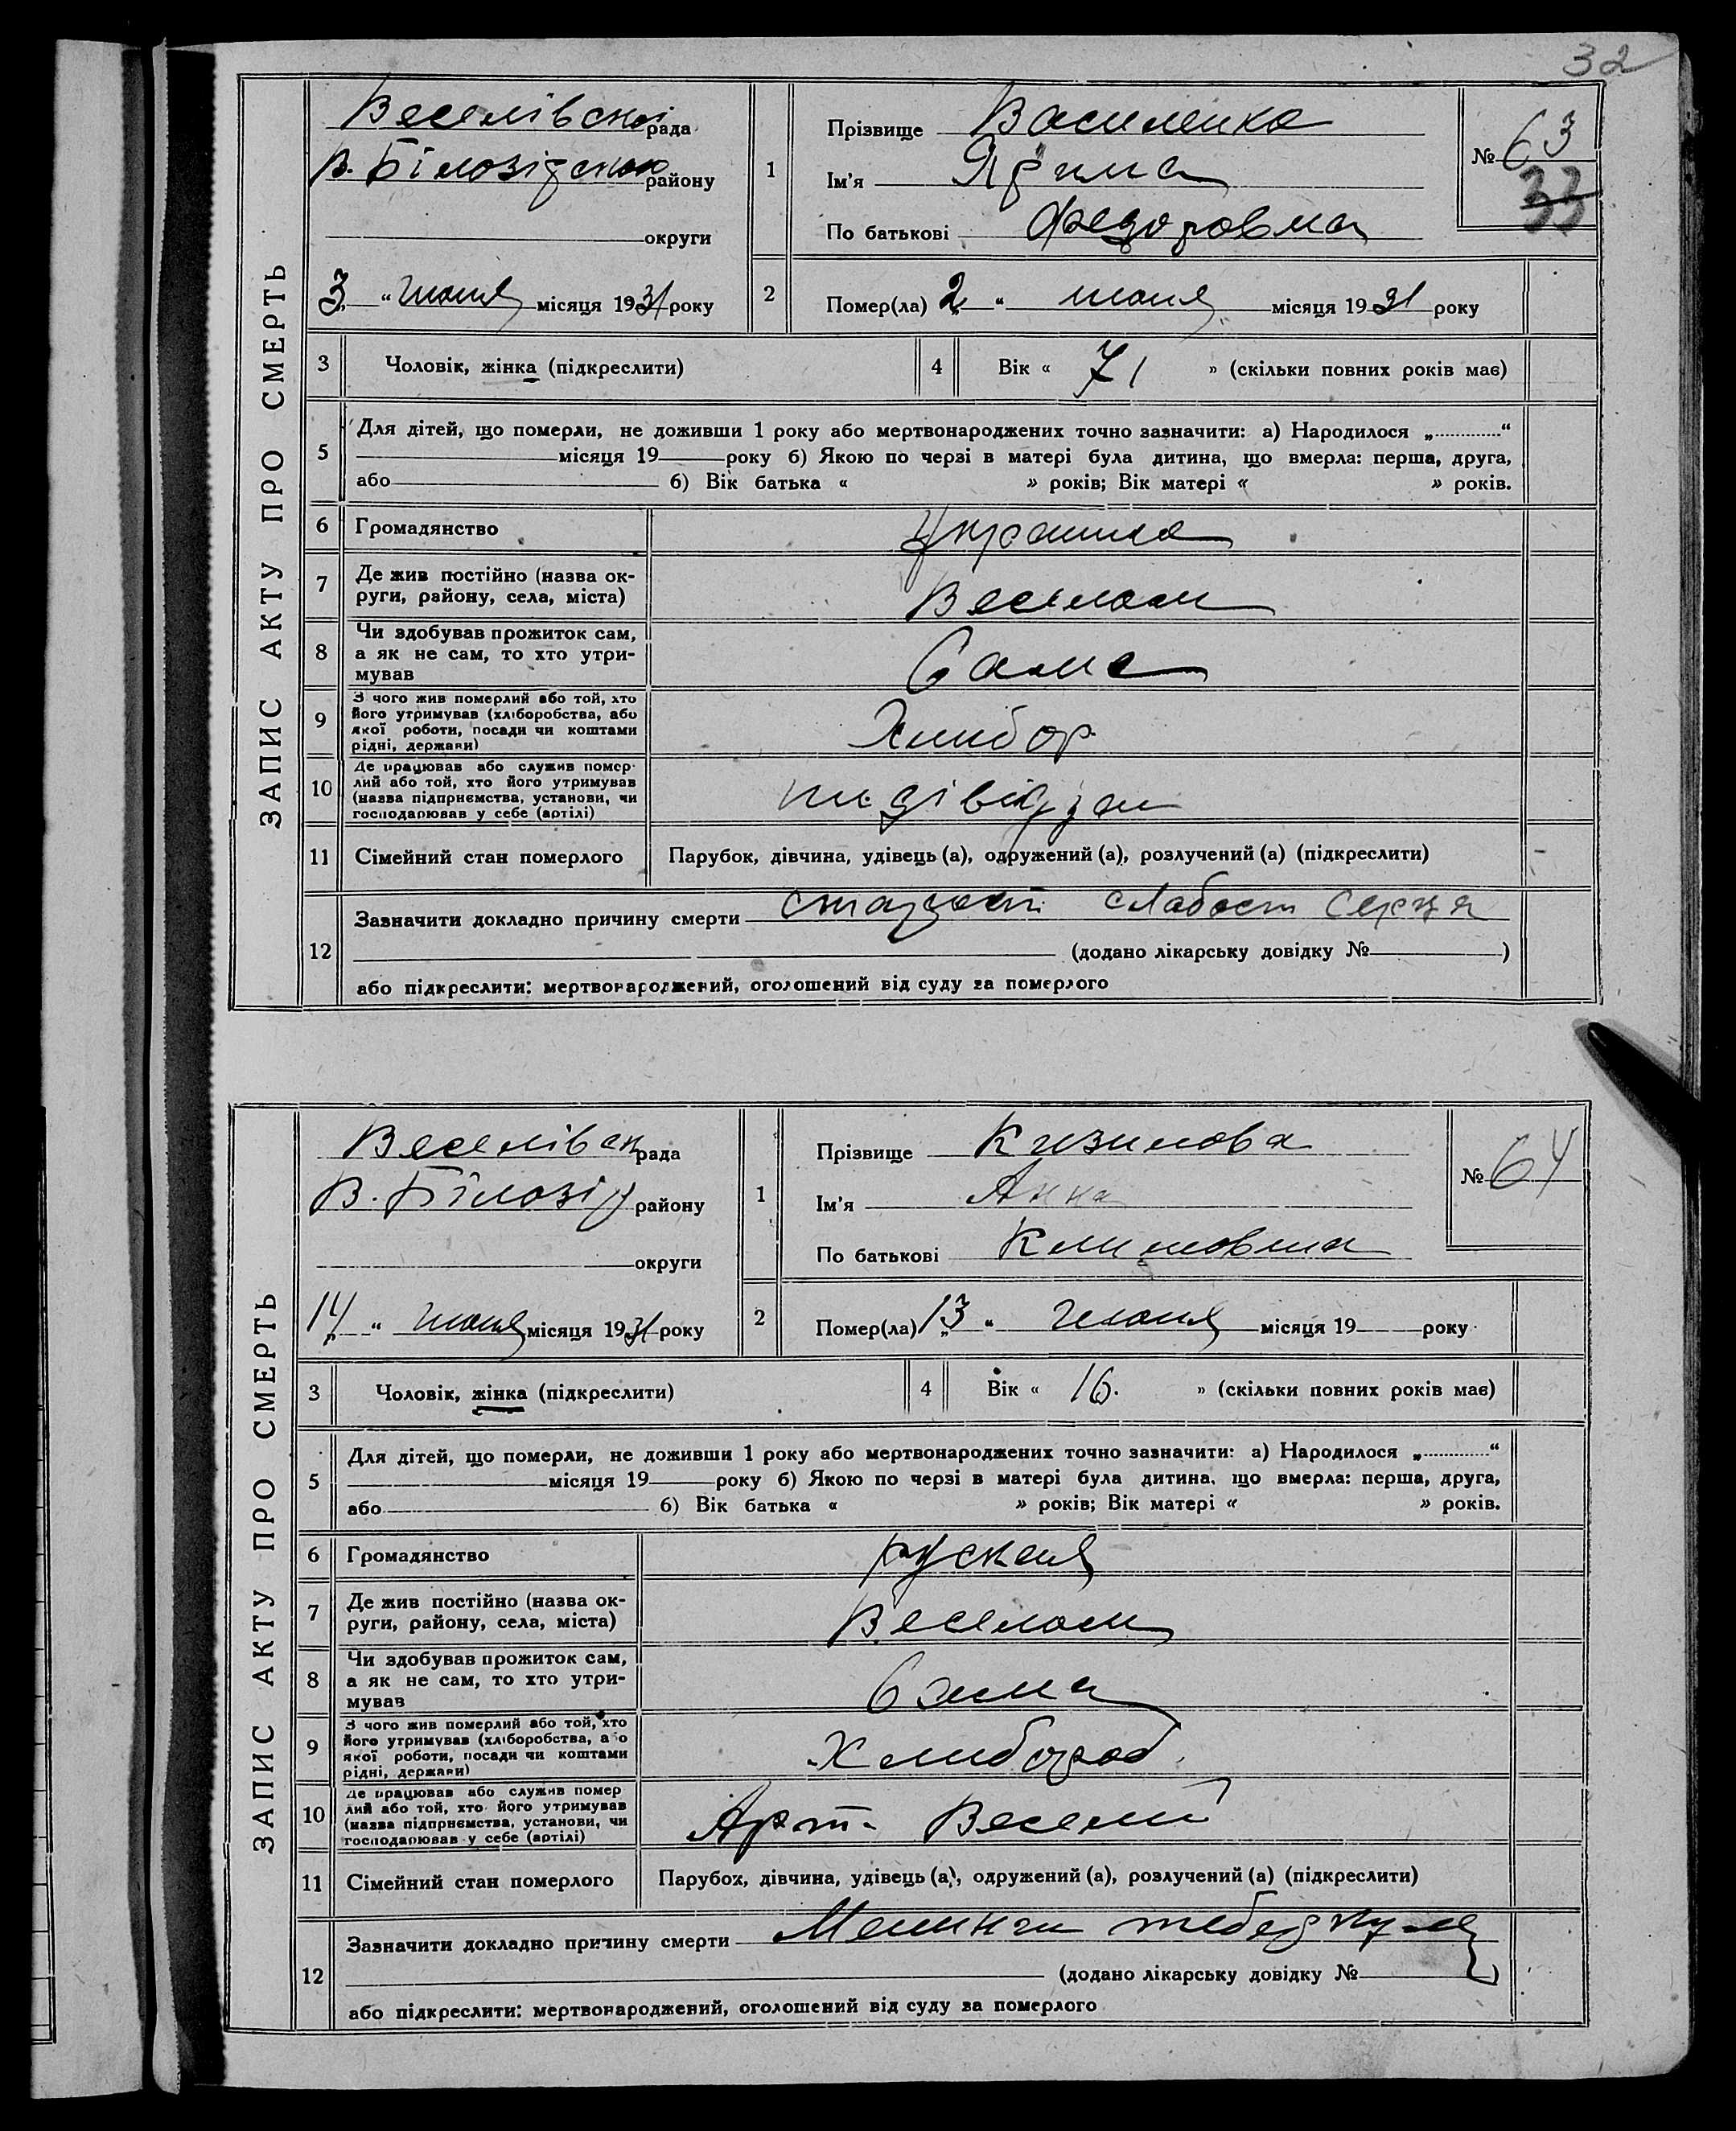 32
ЗАПИС АКТУ ПРО СМЕРТЬ
Веселівської рада
В. Білозірського району
округи
"3" июня місяця 1931 року
1
Прізвище Василенко
Ім'я
По батькові Федоровна
№ 63
33
2
Помер(ла) "2" июня місяця 1931 року
3 Чоловік, жінка (підкреслити)
4 Вік « 71 » (скільки повних років має)
5 Для дітей, що померли, не доживши 1 року або мертвонароджених точно зазначити: а) Народилося „ “
місяця 19 року б) Якою по черзі в матері була дитина, що вмерла: перша, друга,
або б) Вік батька « » років; Вік матері « » років.
6 Громадянство Украинка
7 Де жив постійно (назва ок-
руги, району, села, міста) Веселом
8 Чи здобував прожиток сам,
а як не сам, то хто утри-
мував Сама
9 З чого жив померлий або той, хто
його утримував (хліборобства, або
якої роботи, посади чи коштами
рідні, держави) Хлибор
10 Де працював або служив помер-
лий або той, хто його утримував
(назва підприємства, установи, чи
господарював у себе (артілі)
11 Сімейний стан померлого Парубок, дівчина, удівець (а), одружений (а), розлучений (а) (підкреслити)
12 Зазначити докладно причину смерти старост слабост серця
(додано лікарську довідку № )
або підкреслити: мертвонароджений, оголошений від суду за померлого
ЗАПИС АКТУ ПРО СМЕРТЬ
Веселівск рада
В. Білозір району
округи
"14" июня місяця 1931 року
1
Прізвище Кизилова
Ім'я Анна
По батькові Климовна
№ 64
2
Помер(ла) "13" июня місяця 19 року
3 Чоловік, жінка (підкреслити)
4 Вік « 16. » (скільки повних років має)
5 Для дітей, що померли, не доживши 1 року або мертвонароджених точно зазначити: а) Народилося „ “
місяця 19 року б) Якою по черзі в матері була дитина, що вмерла: перша, друга,
або б) Вік батька « » років; Вік матері « » років.
6 Громадянство руская
7 Де жив постійно (назва ок-
руги, району, села, міста) Веселом
8 Чи здобував прожиток сам,
а як не сам, то хто утри-
мував Сама
9 З чого жив померлий або той, хто
його утримував (хліборобства, або
якої роботи, посади чи коштами
рідні, держави) Хлибороб
10 Де працював або служив помер
лий або той, хто його утримував
(назва підприємства, установи, чи
господарював у себе (артілі) Арт.
11 Сімейний стан померлого Парубок, дівчина, удівець (а), одружений (а), розлучений (а) (підкреслити)
12 Зазначити докладно причину смерти
(додано лікарську довідку № )
або підкреслити: мертвонароджений, оголошений від суду за померлого